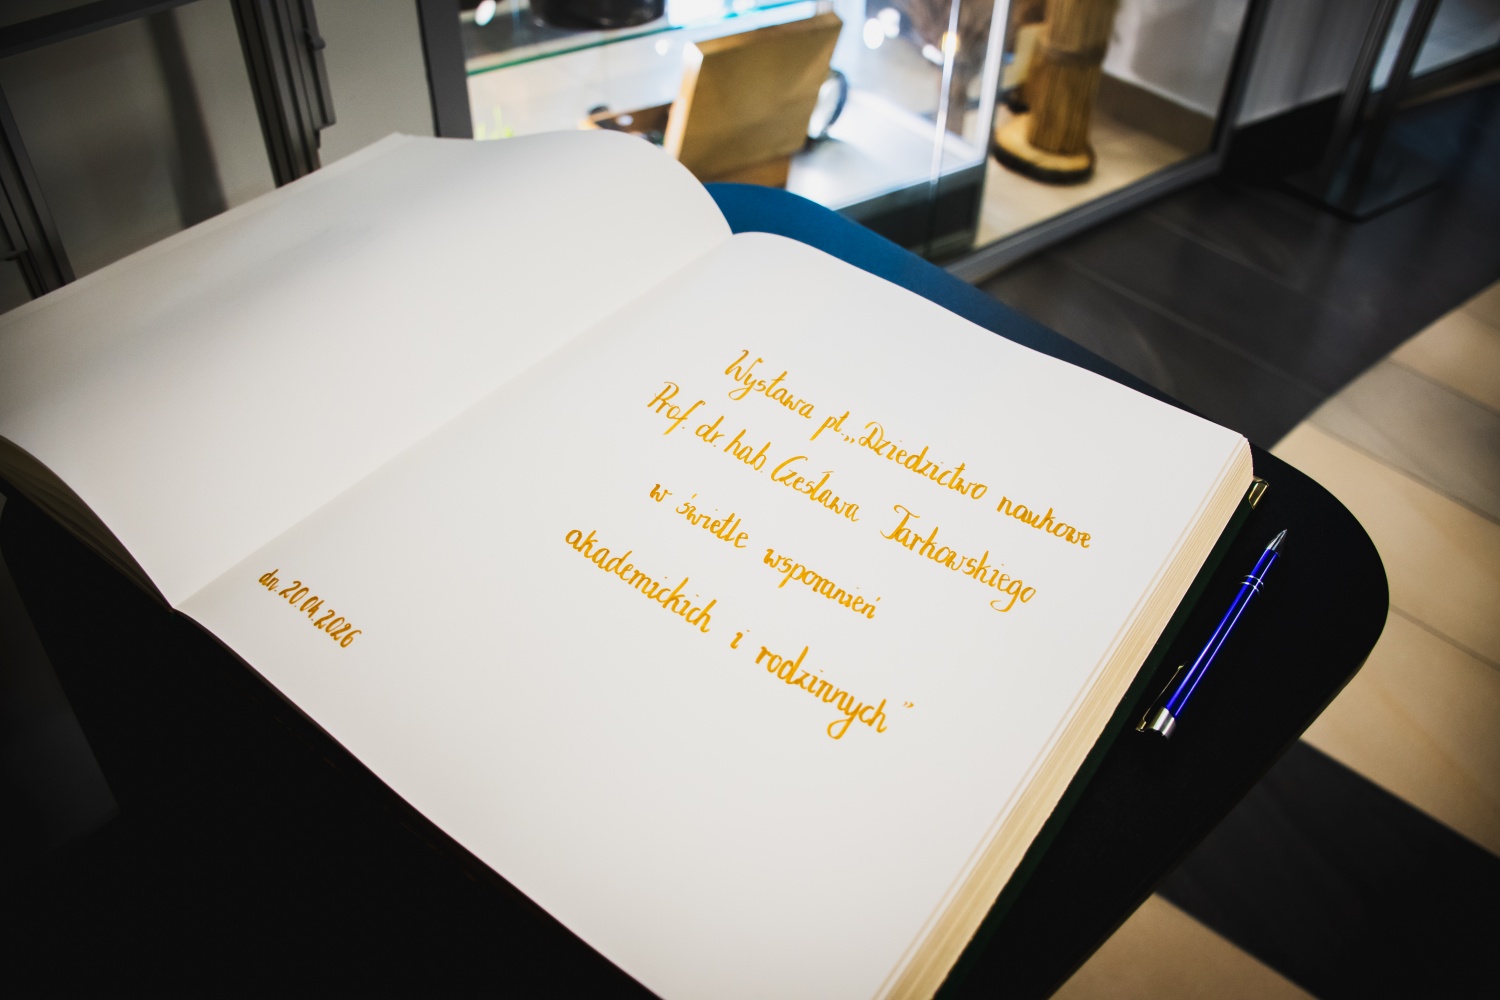 Wystawa pt. „Dziedzictwo naukowe
Prof. dr. hab. Czesława Tarkowskiego
w świetle wspomnień
akademickich i rodzinnych”
dn. 20.04.2026